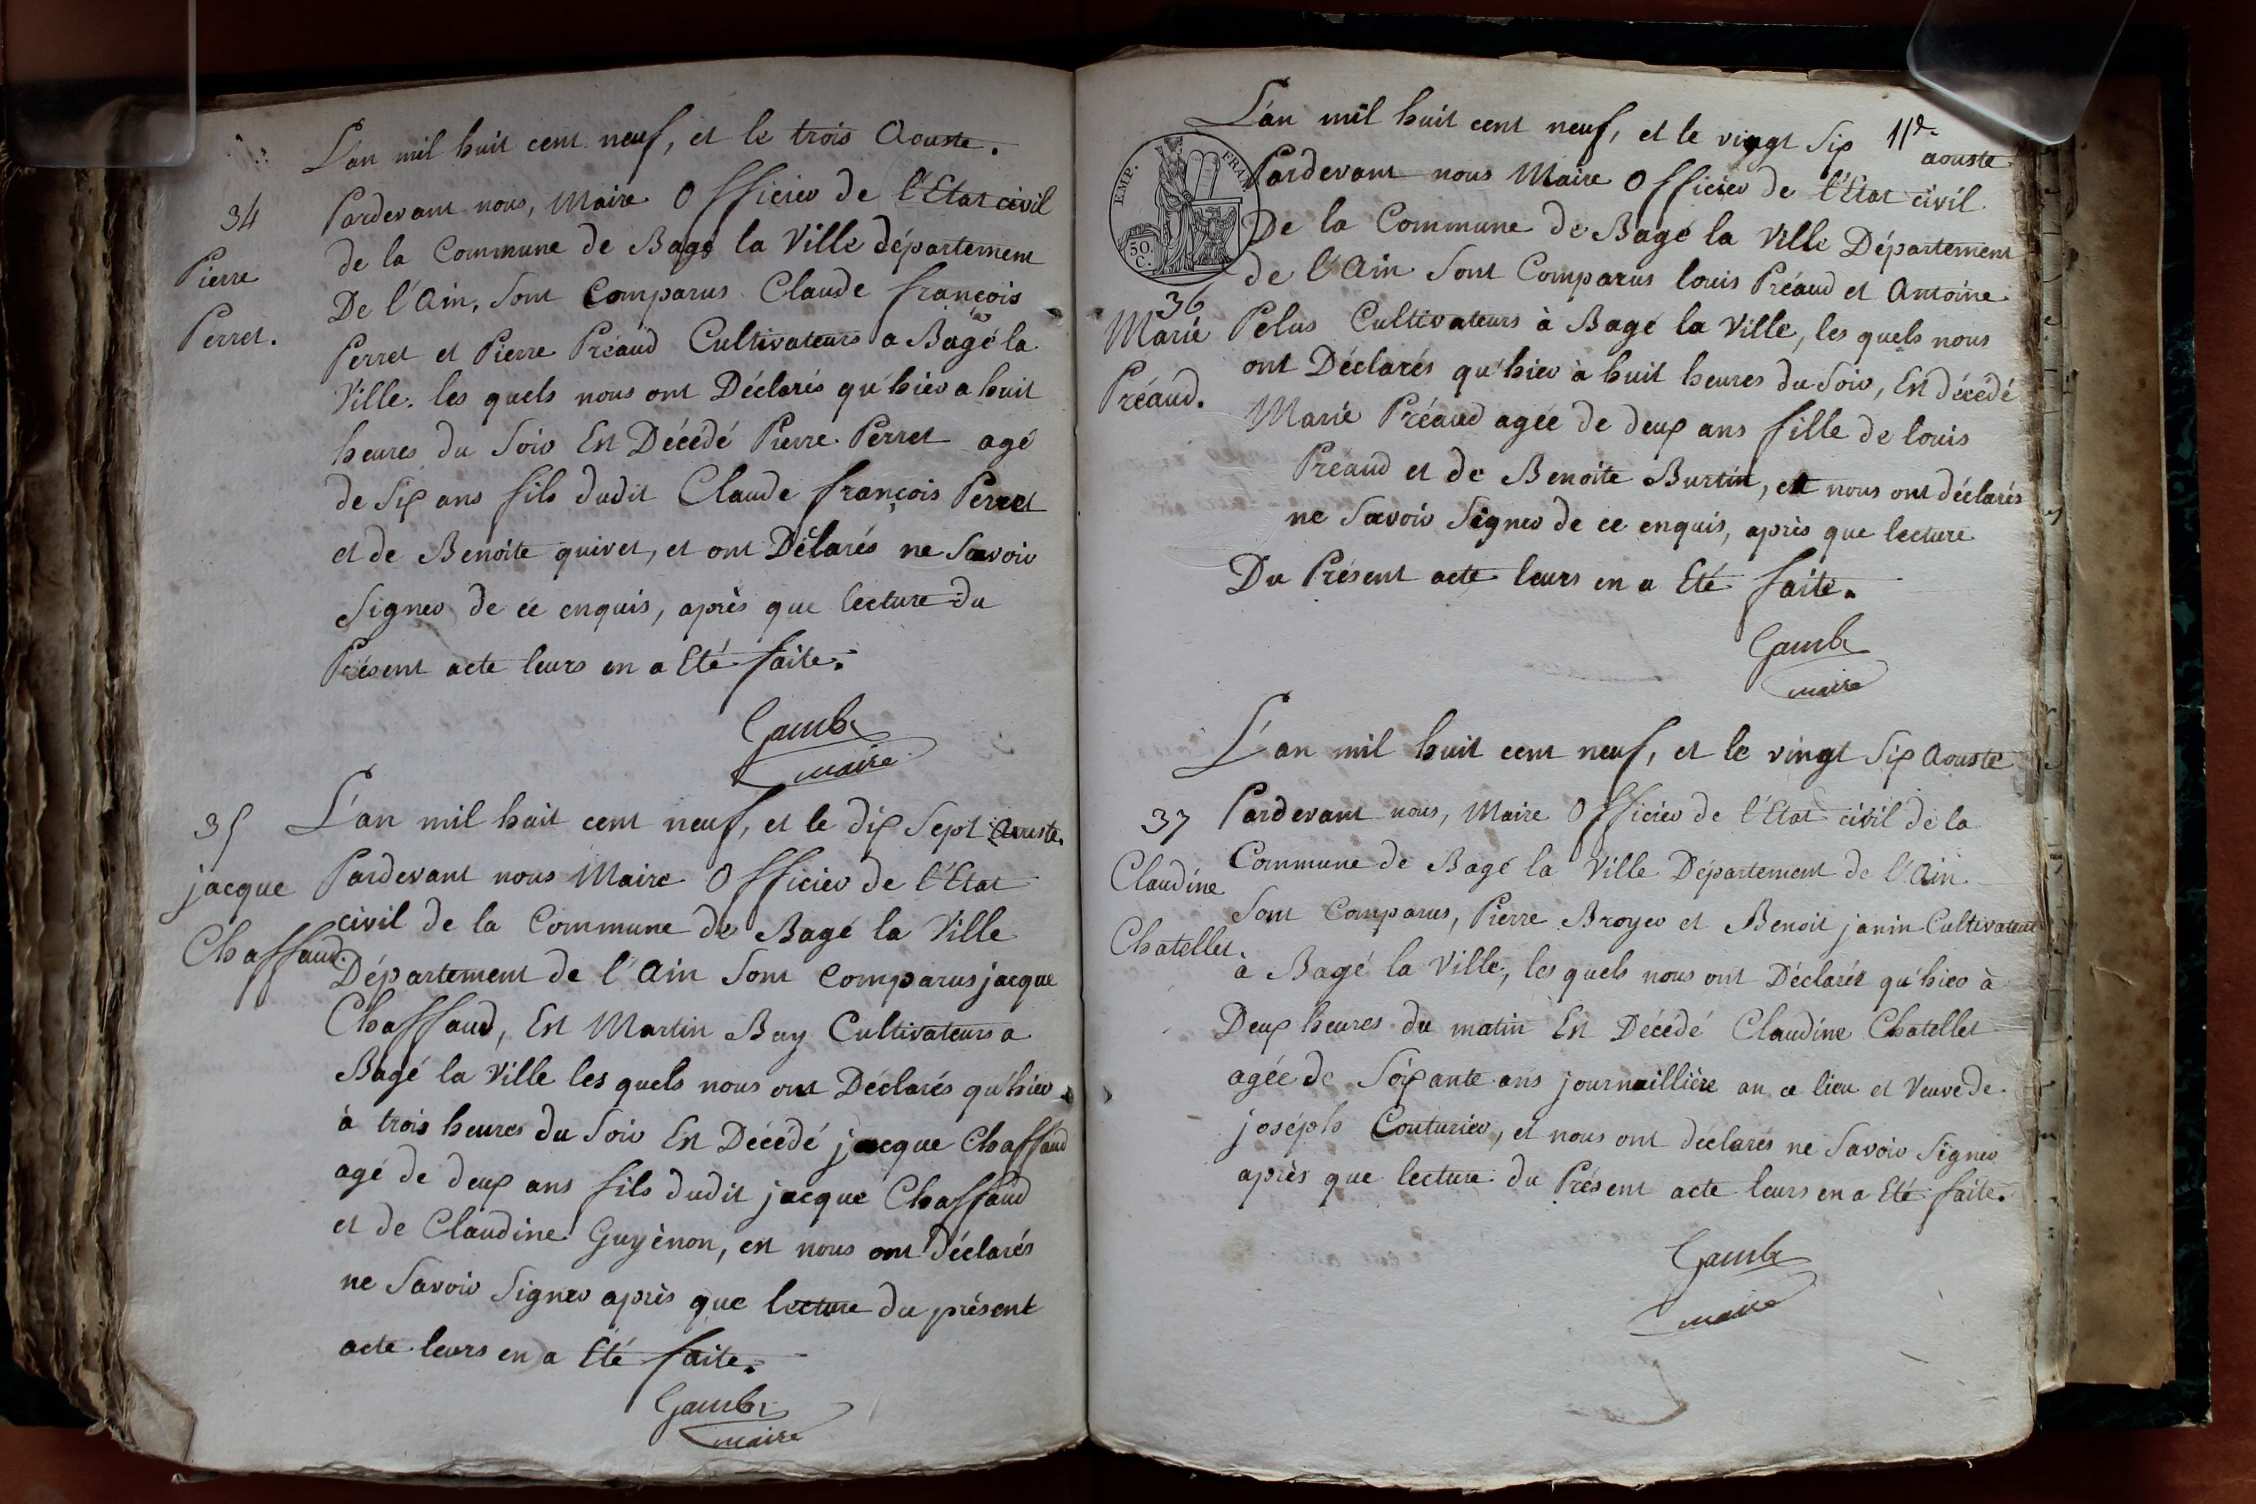 L'an mil huit cent neuf, et le trois Aouste.
34
Pierre
Perret.
Pardevant nous, Maire Officier de l'Etat civil
de la Commune de Bagé la Ville département
De l'Ain, Sont Comparus Claude françois
Perret et Pierre Préaud Cultivateurs a Bagé la
Ville. les quels nous ont Déclarés qu'hier a huit
heures du Soir Est Décédé Pierre Perret agé
de Six ans fils dudit Claude françois Perret
et de Benoite quivet, et ont Délarés ne Savoir
Signer de ce enquis, après que lecture du
Présent acte leurs en a Eté faite.
Gambr
maire
35
jacque
Chaffaud.
L'an mil huit cent neuf, et le dix Sept Aouste.
Pardevant nous Maire Officier de l'Etat
civil de la Commune de Bagé la Ville
Département de l'Ain Sont Comparus jacque
Chaffaud, Est Martin Bay Cultivateurs a
Bagé la Ville les quels nous ont Déclarés qu'hier
à trois heures du Soir Est Décédé jacque Chaffaud
agé de deux ans fils dudit jacque Chaffaud
et de Claudine Guyènon, et nous ont déclarés
ne Savoir Signer après que lecture du présent
acte leurs en a Eté faite.
Gambr
maire
11e.
L'an mil huit cent neuf, et le vingt Six aouste
EMP. FRAN
50
C.
36
Marie
Préaud.
Pardevant nous Maire Officier de l'Etat civil
De la Commune de Bagé la Ville Département
de l'Ain Sont Comparus louis Préaud et Antoine
Pelus Cultivateurs à Bagé la Ville, les quels nous
ont Déclarés qu'hier à huit heures du Soir, Est décédé
Marie Préaud agée de deux ans fille de louis
Préaud et de Benoite Burtin, et nous ont déclarés
ne Savoir Signer de ce enquis, après que lecture
Du Présent acte leurs en a Eté faite.
Gambr
maire
L'an mil huit cent neuf, et le vingt Six Aouste
37
Claudine
Chatellet
Pardevant nous, Maire Officier de l'Etat civil de la
Commune de Bagé la Ville Département de l'Ain
Sont Comparus, Pierre Broyer et Benoit janin Cultivateurs
à Bagé la Ville, les quels nous ont Déclarés qu'hier à
Deux heures du matin Est Décédé Claudine Chatellet
agée de Soixante ans journaillière au ce lieu et Veuve de
joséph Couturier, et nous ont déclarés ne Savoir Signer
après que lecture du Présent acte leurs en a Eté faite.
Gambr
maire